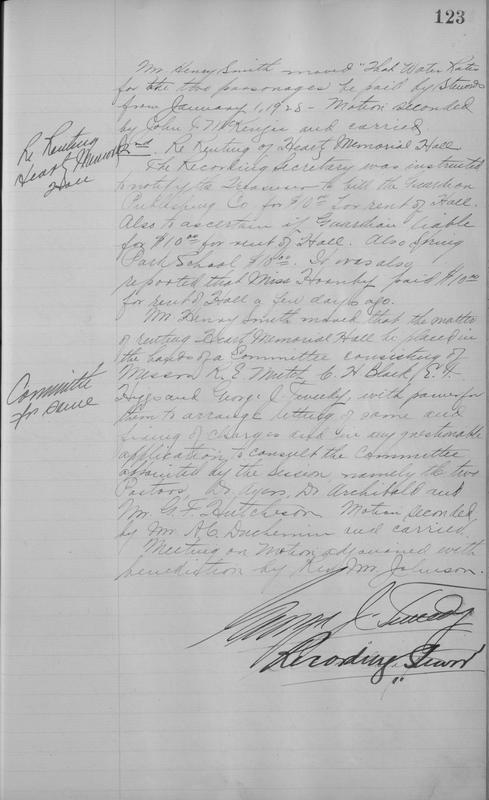 123
Mr Henry Smith moved "That Water Rates
for the two parsonages be paid by Stewards
from January 1, 1928 - Motion seconded
by John J. McKenzie and carried
Re Renting
Heartz Memorial
Hall
2nd. Re Renting of Heartz Memorial Hall
The Recording Secretary was instructed
to notify the Treasurer to bill the Guardian
Publishing Co for $10.00 for rent of Hall.
Also to ascertain if Guardian liable
for $10.00 for rent of Hall. Also Spring
Park School $10.00. It was also
reported that Miss Hornby paid $10.00
for rent of Hall a few days ago.
Mr Henry Smith moved that the matter
of renting Heartz Memorial Hall be placed in
Committee
for same
the hands of a Committee consisting of
Messrs R. E. C. H Black, E. F.
and George J. Tweedy, with power for
them to arrange letting of same and
fixing of charges and in any questionable
application, to consult the Committee
appointed by the Session, namely the two
Pastors, Dr. Ayers, Dr Archibald and
Mr. G. F. Hutcheson Motion seconded
by Mr A. C. Duchemin and carried.
Meeting on motion adjourned with
benediction by Rev Wm Johnson.
George J. Tweedy
Recording Steward